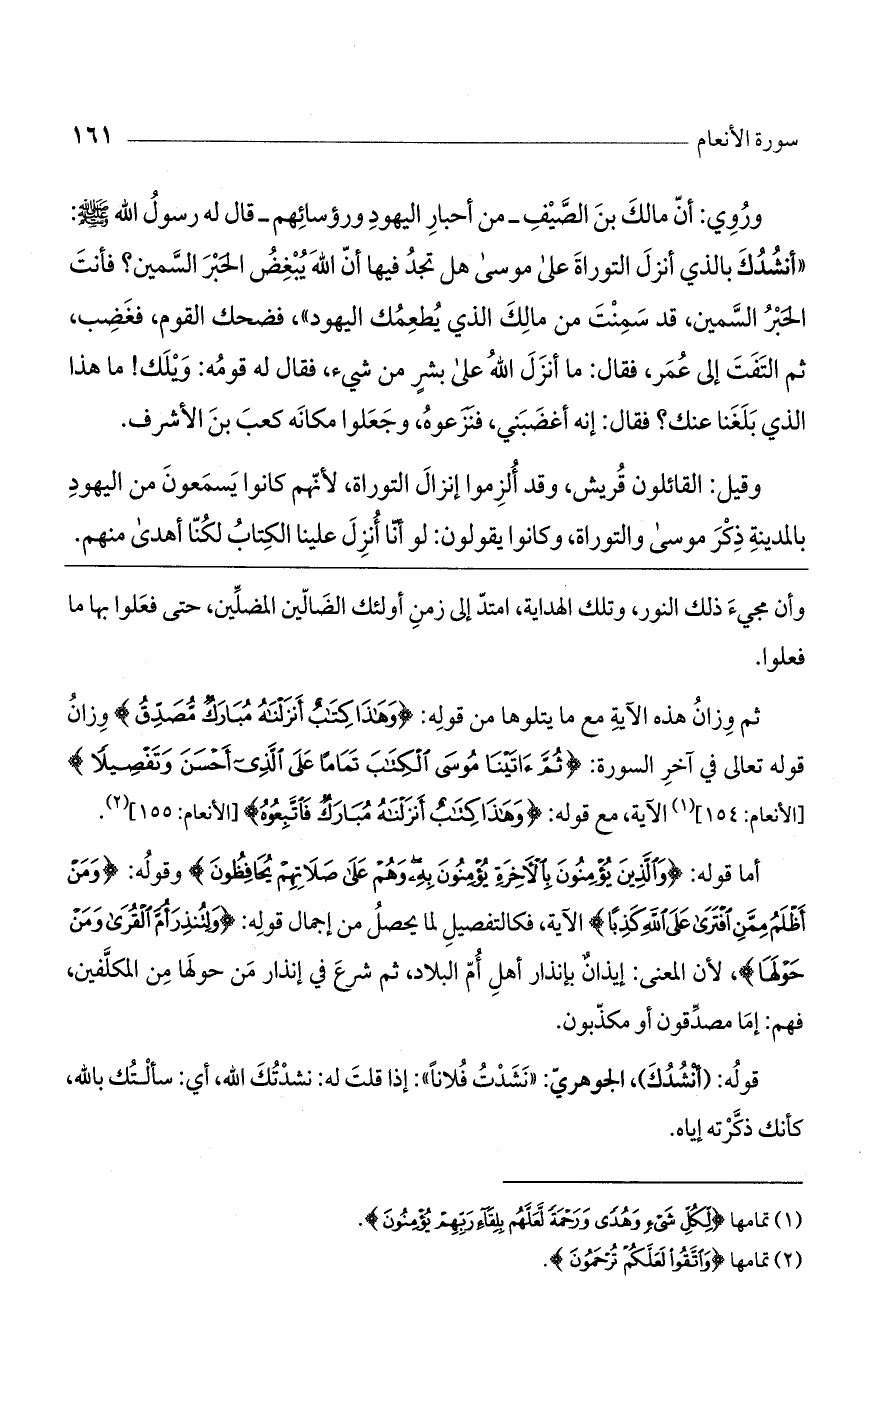 سورة الأنعام ١٦١
ورُوِي: أنّ مالكَ بنَ الصَّيْفِ - من أحبارِ اليهودِ ورؤسائِهم - قال له رسولُ الله ﷺ:
«أنشُدُكَ بالذي أنزلَ التوراةَ علىٰ موسىٰ هل تجدُ فيها أنّ اللهَ يُبْغِضُ الحَبْرَ السَّمين؟ فأنتَ
الحَبْرُ السَّمين، قد سَمِنْتَ من مالِكَ الذي يُطعِمُك اليهود»، فضحك القوم، فغَضِب،
ثم التَفَتَ إلى عُمَر، فقال: ما أنزَلَ اللهُ علىٰ بشرٍ من شيء، فقال له قومُه: وَيْلَك! ما هذا
الذي بَلَغَنا عنك؟ فقال: إنه أغضَبَني، فنَزَعوهُ، وجَعَلوا مكانَه كعبَ بنَ الأشرف.
وقيل: القائلون قُريش، وقد أُلزِموا إنزالَ التوراة، لأنّهم كانوا يَسمَعونَ من اليهودِ
بالمدينةِ ذِكْرَ موسىٰ والتوراة، وكانوا يقولون: لو أنّا أُنزِلَ علينا الكِتابُ لكُنّا أهدىٰ منهم.
وأن مجيءَ ذلك النور، وتلك الهداية، امتدّ إلى زمنِ أولئك الضَالّين المضلِّين، حتى فعَلوا بها ما
فعلوا.
ثم وِزانُ هذه الآيةِ مع ما يتلوها من قولِه: ﴿وَهَٰذَا كِتَٰبٌ أَنزَلْنَٰهُ مُبَارَكٌ مُّصَدِّقُ﴾ وِزانُ
قوله تعالى في آخرِ السورة: ﴿ثُمَّ ءَاتَيْنَا مُوسَى ٱلْكِتَٰبَ تَمَامًا عَلَى ٱلَّذِىٓ أَحْسَنَ وَتَفْصِيلًا﴾
[الأنعام: ١٥٤](١) الآية، مع قوله: ﴿وَهَٰذَا كِتَٰبٌ أَنزَلْنَٰهُ مُبَارَكٌ فَٱتَّبِعُوهُ﴾ [الأنعام: ١٥٥](٢).
أما قوله: ﴿وَٱلَّذِينَ يُؤْمِنُونَ بِٱلْءَاخِرَةِ يُؤْمِنُونَ بِهِۦ وَهُمْ عَلَىٰ صَلَاتِهِمْ يُحَافِظُونَ﴾ وقولُه: ﴿وَمَنْ
أَظْلَمُ مِمَّنِ ٱفْتَرَىٰ عَلَى ٱللَّهِ كَذِبًا﴾ الآية، فكالتفصيلِ لما يحصلُ من إجمال قولِه: ﴿وَلِتُنذِرَ أُمَّ ٱلْقُرَىٰ وَمَنْ
حَوْلَهَا﴾، لأن المعنى: إيذانٌ بإنذار أهلِ أُمّ البلاد، ثم شرعَ في إنذار مَن حولهَا مِن المكلَّفين،
فهم: إمَا مصدِّقون أو مكذّبون.
قولُه: (أَنْشُدُكَ)، الجوهريّ: «نَشَدْتُ فُلاناً»: إذا قلتَ له: نشدْتُكَ الله، أي: سألْتُك بالله،
كأنك ذكَّرْته إياه.
(١) تمامها ﴿لِّكُلِّ شَىْءٍ وَهُدًى وَرَحْمَةً لَّعَلَّهُم بِلِقَآءِ رَبِّهِمْ يُؤْمِنُونَ﴾.
(٢) تمامها ﴿وَٱتَّقُوا۟ لَعَلَّكُمْ تُرْحَمُونَ﴾.